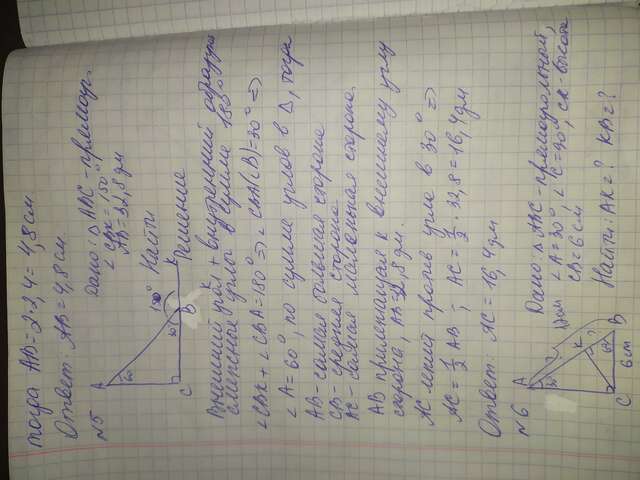 тогда AB = 2·2,4 = 4,8 см
Ответ: AB = 4,8 см.
N5
Дано: △ABC - прямоуг.
∠CBK = 150°
AB = 32,8 дм
Найти
Решение
A
60
150°
30
B
K
C
Внешний угол + внутренний образуют
смежные углы в сумме 180°
∠CBK + ∠CBA = 180° => ∠CBA(B) = 30° =>
∠A = 60°, по сумме углов в △, тогда
AB - самая большая сторона
CB - средняя сторона
AC - самая маленькая сторона.
AB прилежащая к внешнему углу
сторона, AB = 32,8 дм.
AC лежит против угла в 30° =>
AC = 1/2 AB ; AC = 1/2 · 32,8 = 16,4 дм
Ответ: AC = 16,4 дм
N6
Дано: △ABC - прямоугольный,
∠A = 30°, ∠C = 90°, CK - высота
CB = 6 см
Найти: AK = ? KB = ?
A
30
K
?
60
B
C
6 см